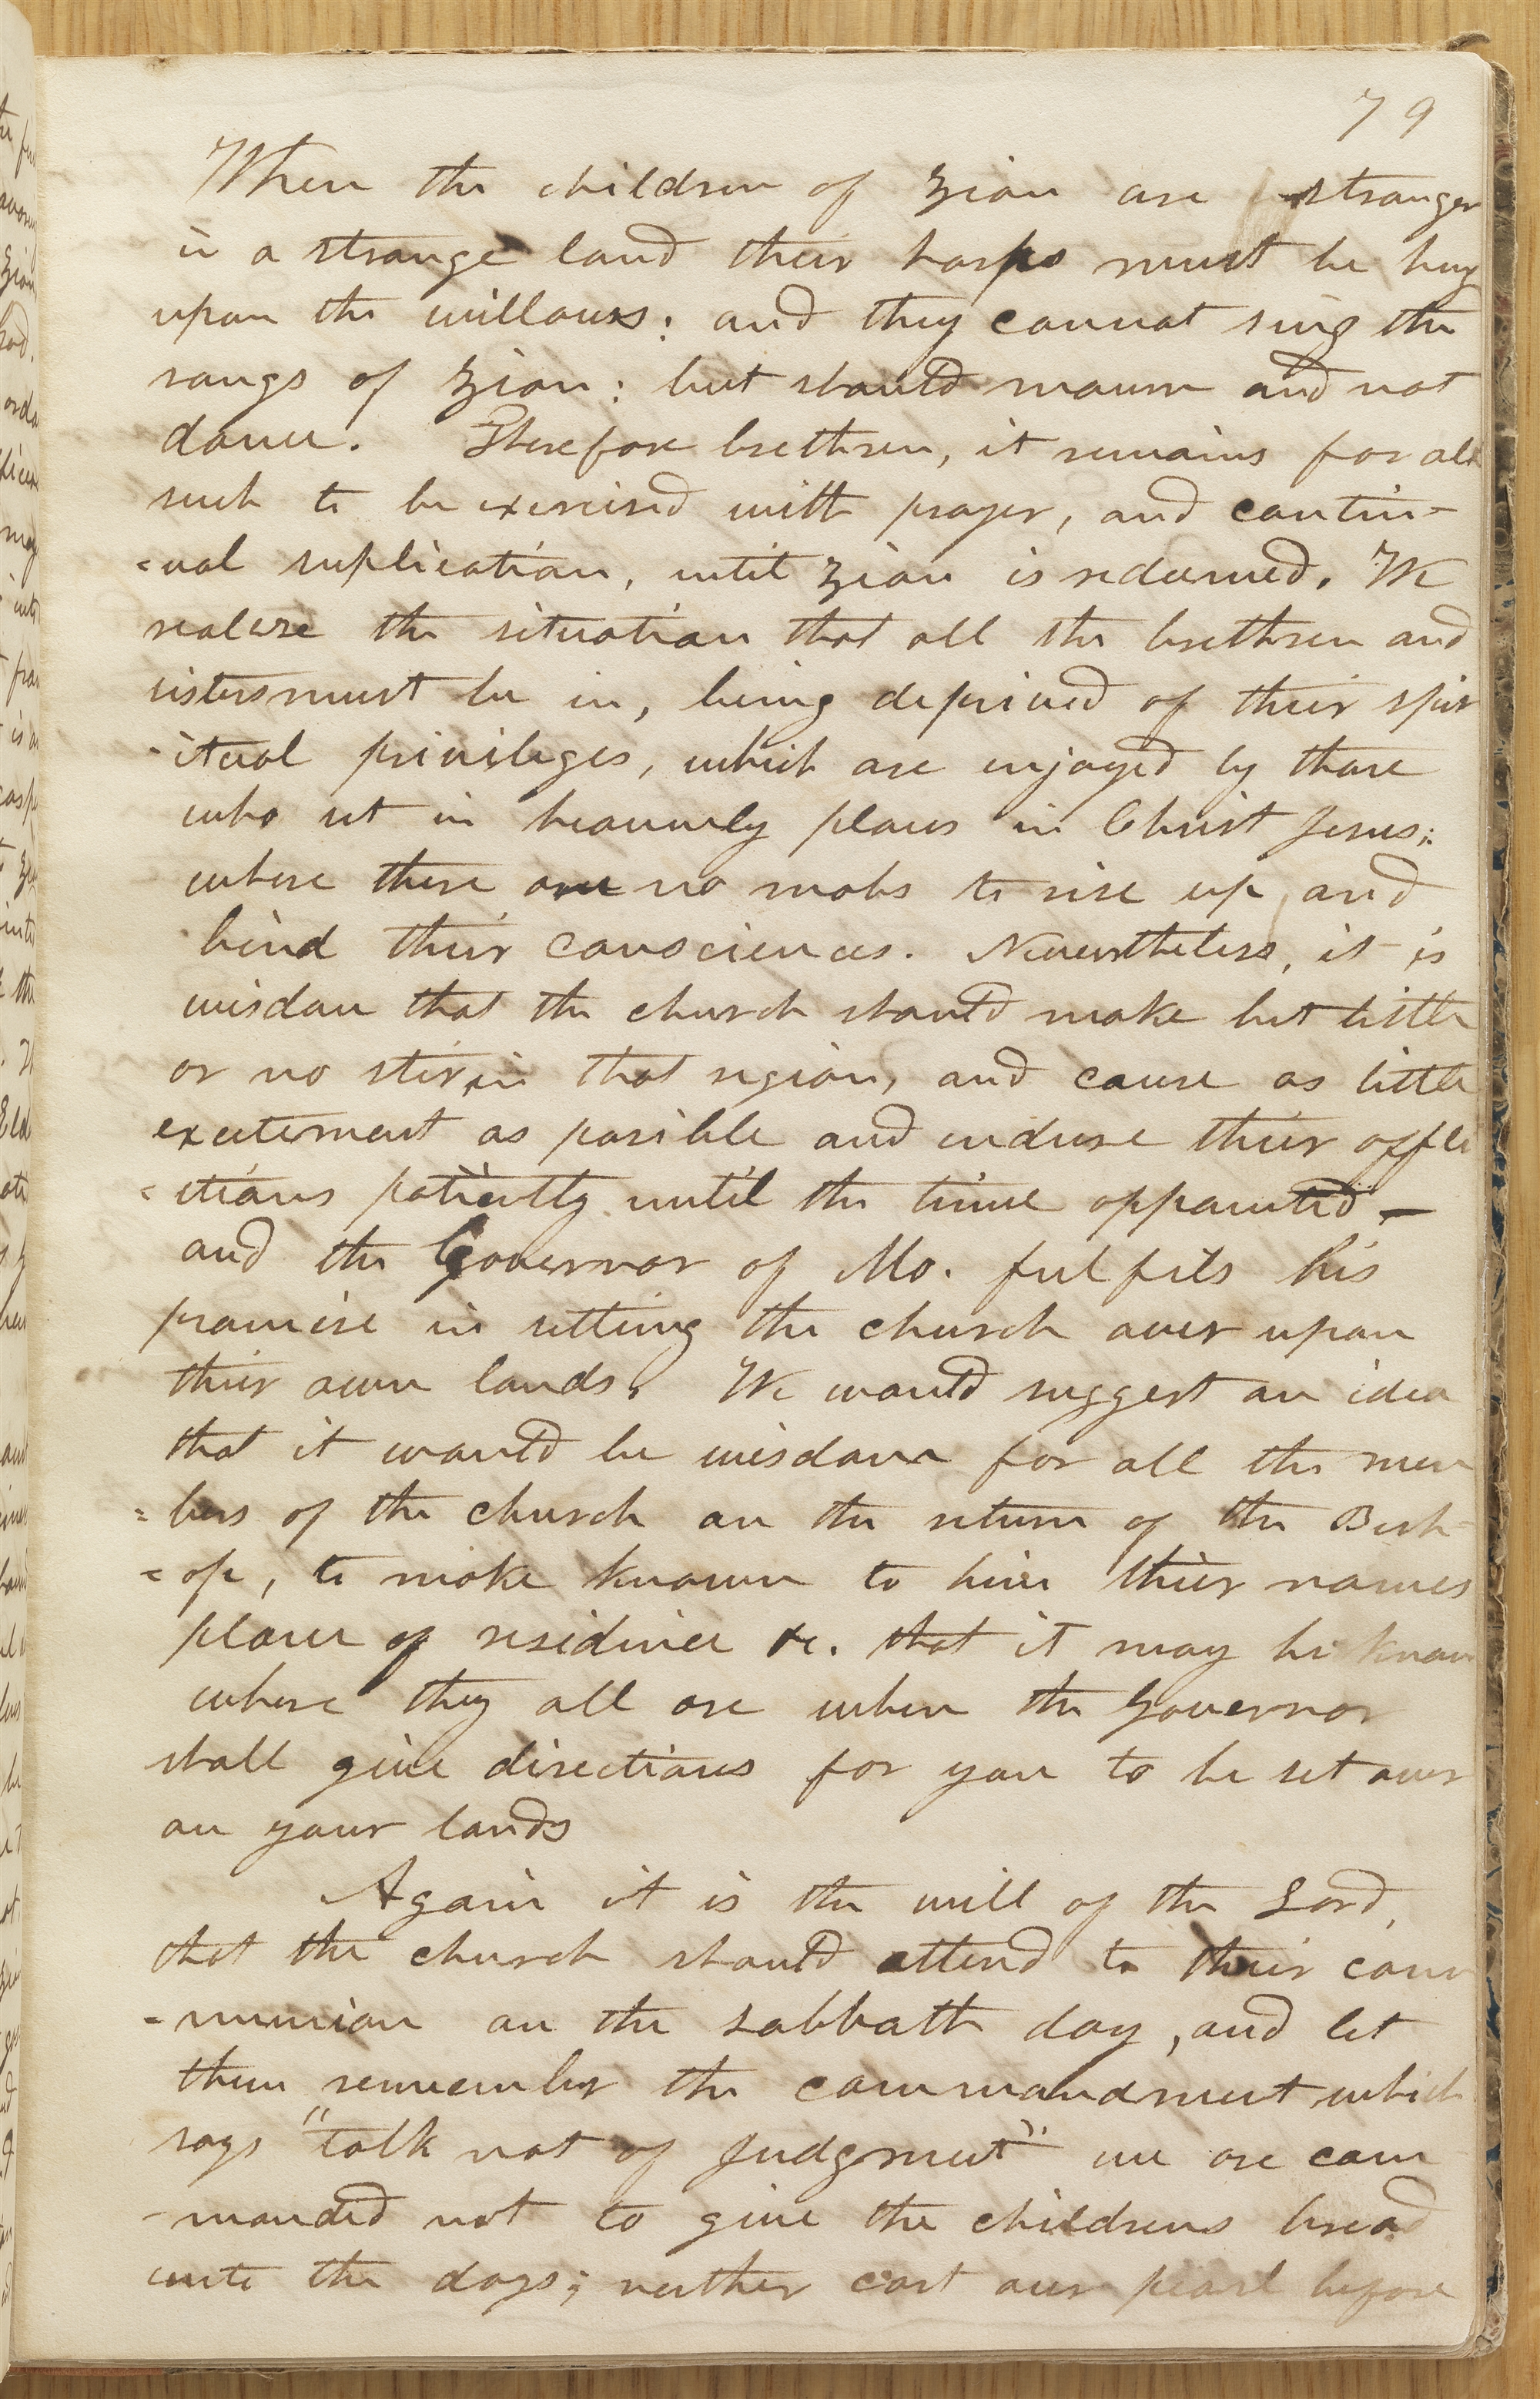 79
When the children of Zion are stranger
in a strange land their harps must be hung
upon the willows: and they cannot sing the
songs of Zion: but should mourn and not
dance. Therefore brethren, it remains for all
such to be exercised with prayer, and contin-
=ual suplication, until Zion is redeemed. We
realise the situation that all the brethren and
sisters must be in, being deprived of their spir
-itual privileges, which are enjoyed by those
who set in heavenly places in Christ Jesus;
where there are no mobs to rise up, and
bind their consciences. Nevertheless, it is
wisdom that the church should make but little
or no stir, in that region, and cause as little
excitement as posible and endure their affli
=ctions patiently until the time appointed, —
and the Governor of Mo. fulfils his
promise in setting the church over upon
their own lands. We would suggest an idea
that it would be wisdom for all the mem
=bers of the church on the return of the Bish-
=op, to make known to him their names
place of residence &c. that it may be known
where they all are when the Governor
shall give directions for you to be set over
on your lands
Again it is the will of the Lord,
that the church should attend to their com
-munion on the sabbath day, and let
them remember the commandment which
says "talk not of Judgment" we are com
-manded not to give the childrens bread
unto the dogs; neither cast our pearl before